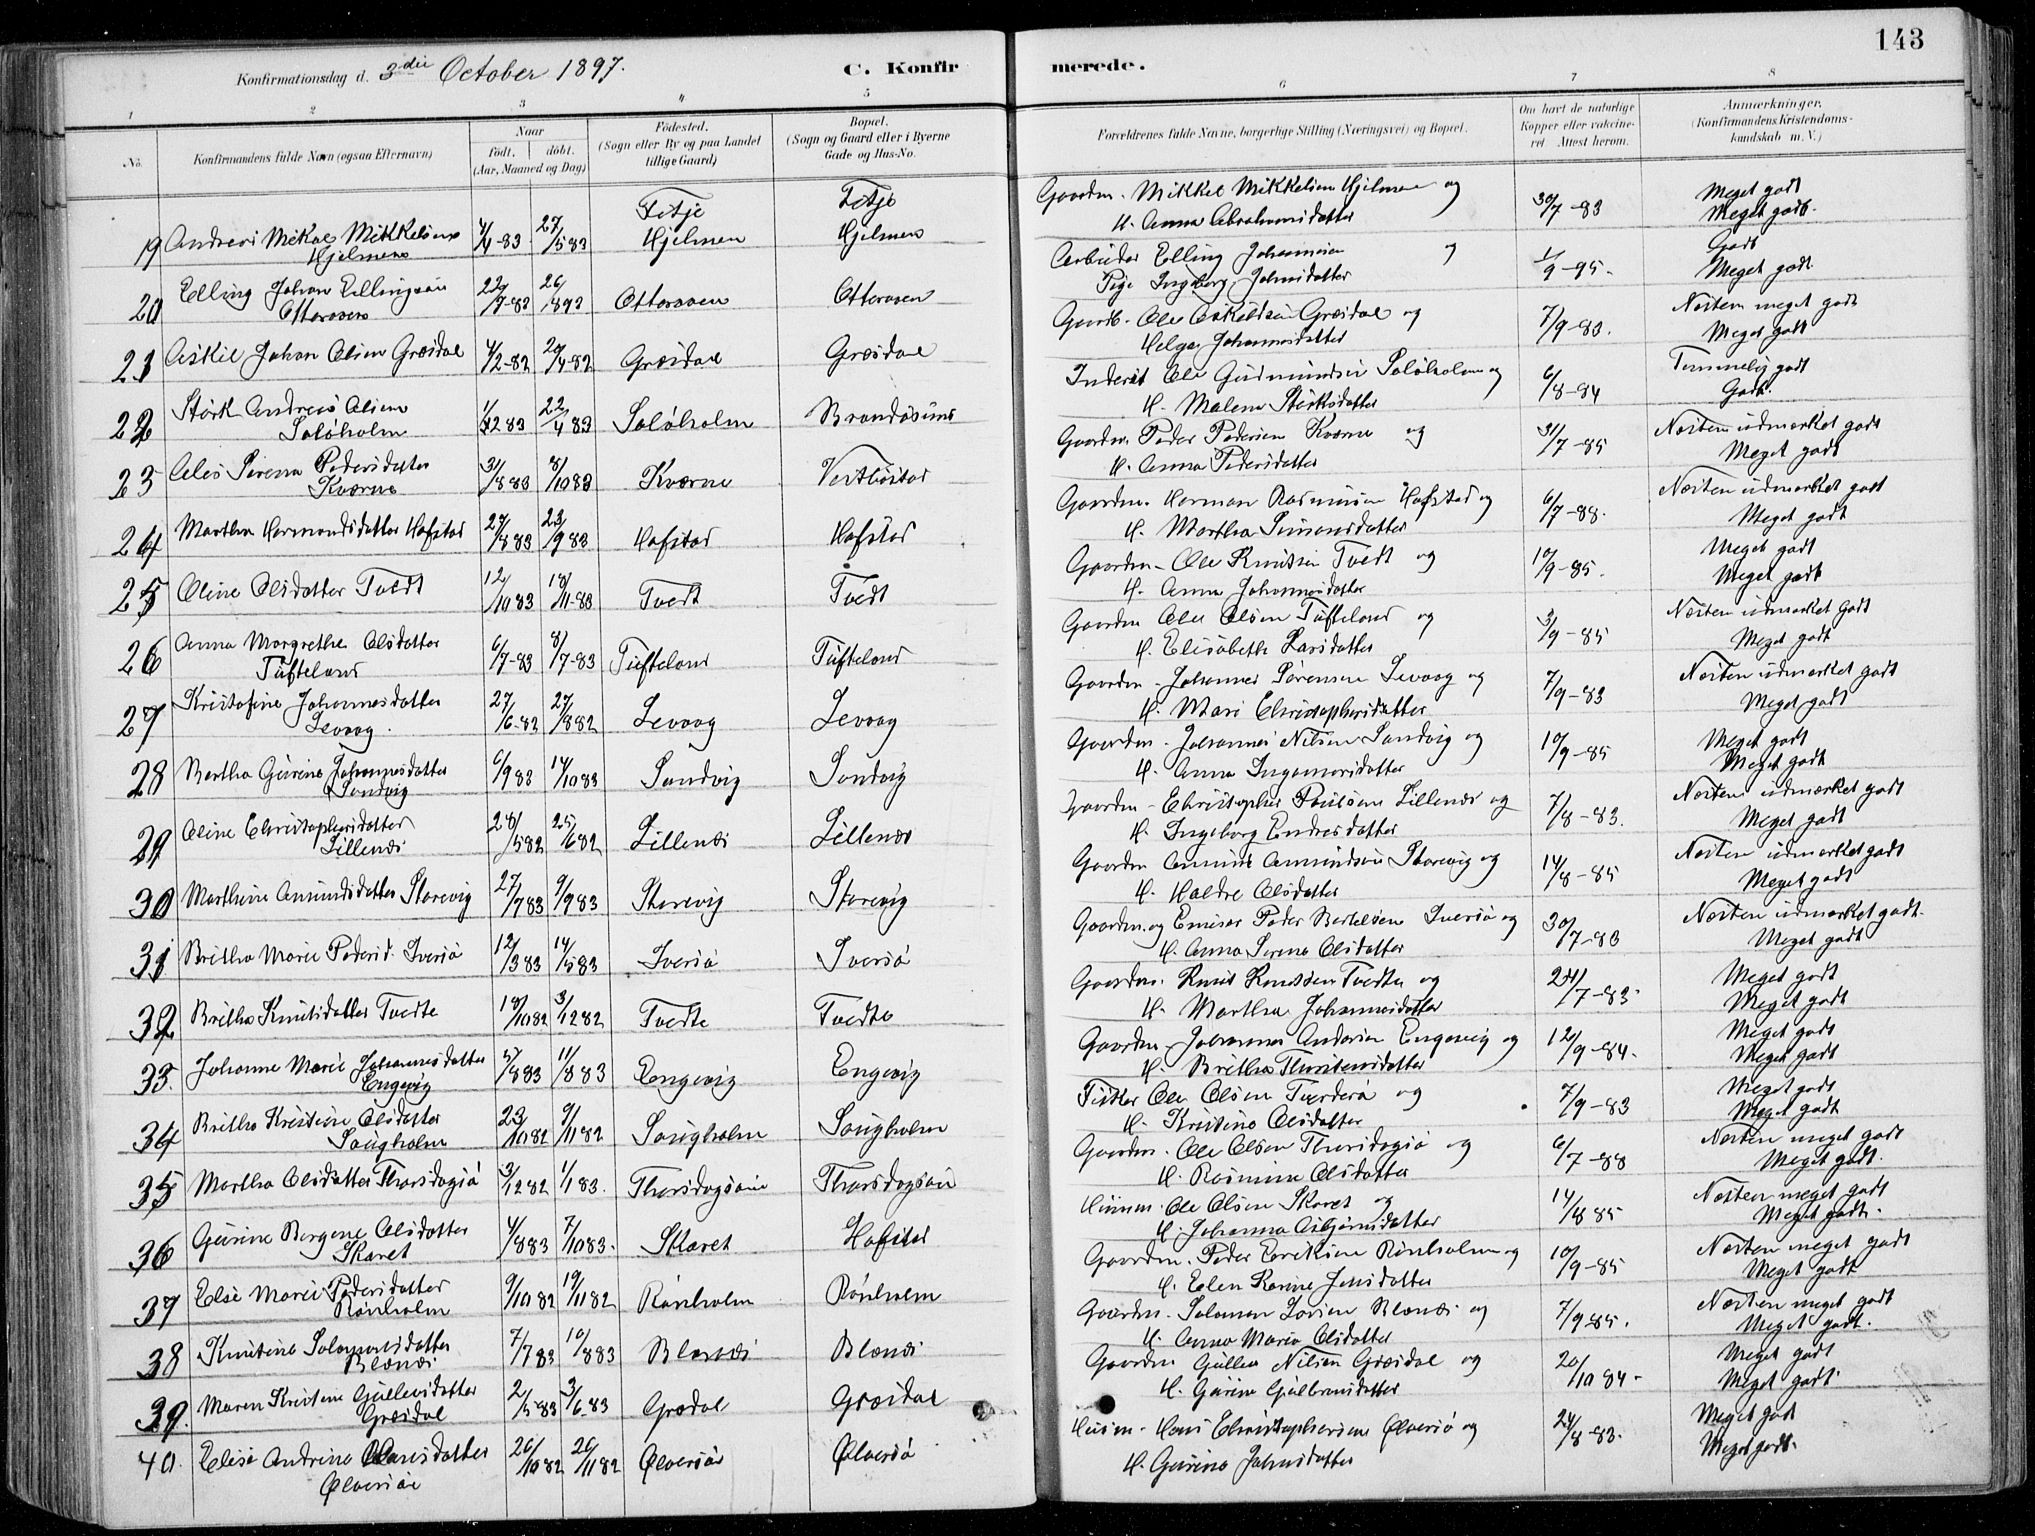 143
Konfirmationsdag d. 3die October 1897. C. Konfirmerede.
1 2 3 4 5 6 7 8
No. Konfirmandens fulde Navn (ogsaa Efternavn) Naar født. døbt. (Aar, Maaned og Dag) Fødested. (Sogn eller By og paa Landet tillige Gaard) Bopæl. (Sogn og Gaard eller i Byerne Gade og Hus-No. Forældrenes fulde Navne, borgerlige Stilling (Næringsvei) og Bopæl. Om havt de naturlige Kopper eller vaccineret. Attest herom. Anmærkninger. (Konfirmandens Kristendomskundskab m. V.)
Fitje Fitje
19 Andreas Mikal Mikkelsen Hjelmen 4/4-83 27/5 83 Hjelmen Hjelmen Gaardm. Mikkel Mikkelsen Hjelmen og H. Anna Abrahamsdatter 30/7-83 Meget godt Meget godt.
20 Elling Johan Ellingsen Otteraaen 22/9-82 26/1 893 Otteraaen Otteraaen Arbeider Elling Johannesen og Pige Ingeborg Johnsdatter 1/9-95. Godt Meget godt.
21 Askil Johan Olsen Græsdal 4/2-82 20/4-82 Græsdal Græsdal Gaardb. Ole Askildsen Græsdal og Helga Johannesdatter 7/9-83. Næsten meget godt Meget godt
22 Størk Andreas Olsen Soløholm 1/12 83 22/4 83 Soløholm Brandasund Inderst Ole Gudmundsen Soløholm og H. Malene Størksdatter 6/8-84 Temmelig godt Godt.
23 Serena Pedersdatter Kværne 31/8 83 8/10 83 Kværne Vestbøstad Gaardm. Peder Pedersen Kværne og H. Anna Pedersdatter 31/7-85 Næsten udmærket godt Meget godt
24 Martha Hermandsdatter Hofstad 27/8 83 23/9 83 Hofstad Hofstad Gaardm. Herman Rasmusen Hofstad og H. Martha Simonsdatter 6/7-88. Næsten udmærket godt Meget godt
25 Oline Olsdatter Tvedt 12/10 83 18/11-83 Tvedt Tvedt Gaardm. Ole Knutsen Tvedt og H. Anna Johannesdatter 10/9-85. Meget godt Meget godt
26 Anna Margrethe Olsdatter Tufteland 6/7-83 8/7-83 Tufteland Tufteland Gaardm Ole Olsen Tufteland og H. Elisabeth Larsdatter 3/9-85 Næsten udmærket godt Meget godt
27 Kristofine Johannesdatter Sevaag. 27/6-82 27/8 82 Sevaag Sevaag Gaardm. Johannes Sørensen Sevaag og H. Mari Christophersdatter 7/9-83 Næsten udmærket godt Meget godt
28 Bertha Gurine Johannesdatter Sandvig 6/9 83 14/10 83 Sandvig Sandvig Gaardm. Johannes Nilsen Sandvig og H. Anna Ingemarsdatter 10/9-85 Meget godt Meget godt
29 Oline Christophersdatter Lillenæs 28/5 82 25/6 82 Lillenæs Lillenæs Gaardm - Christopher Poulsen Lillenæs og H. Ingeborg Endresdatter 7/8-83. Næsten udmærket godt Meget godt
30 Marthine Amundsdatter Storevig 27/7 83 9/9 83 Storevig Storevig Gaardm Amund Amundsen Storevig og H. Haldre Olsdatter 14/8-85 Næsten udmærket godt Meget godt
31 Britha Marie Pedersd. Iversø 12/3 83 14/5 83 Iversø Iversø Gaardm. og Emisær Peder Bertelsen Iversø og H. Anna Serena Olsdatter 30/7-83 Næsten udmærket godt. Meget godt
32 Britha Knutsdatter Tvedte 18/10 82 3/12 82 Tvedte Tvedte Gaardm. Knut Knutsen Tvedte og H. Martha Johannesdatter 24/7-83. Meget godt Meget godt
33. Johanne Marie Johannesdatter Engevig 5/8 83 11/8 83 Engevig Engevig Gaardm. Johannes Andersen Engevig og H. Britha Thorstensdatter 12/9-84. Meget godt Meget godt
34 Britha Kristine Olsdatter Saugholm 23/10 82 9/11 82 Saugholm Saugholm Fisker Ole Olsen Tverderå og H. Kristine Olsdatter 7/9-83 Meget godt Meget godt
35 Martha Olsdatter Thorsdagsø 3/12 82 1/1 83. Thorsdagsøen Thorsdagsøen Gaardm. Ole Olsen Thorsdagsø og H. Rasmine Olsdatter 6/7-88 Næsten meget godt Meget godt.
36 Gurine Bergene Olsdatter Skaret 4/8 83 7/10 83. Skaret Hofstad Husm. Ole Olsen Skaret og H. Johanna Asbjørnsdatter 14/8 85 Næsten meget godt Meget godt.
37 Else Marie Pedersdatter Rønholm 9/10 82 19/11 82 Rønholm Rønholm Gaardm. Peder Eriksen Rønholm og H. Elen Karine Jensdatter 10/9-85 Næsten meget godt Meget godt
38 Knutine Salomonsdatter Blænæs 7/7 83 10/8 83 Blænæs Blænæs Gaardm. Salomon Larsen Blænæs og H. Anna Maria Olsdatter 7/9 85. Næsten meget godt Meget godt.
39. Maren Kristine Gullesdatter Græsdal 2/5-83 3/6-83 Grædal Græsdal Gaardm Gulle Nilsen Græsdal og H. Gurine Gulbransdatter 20/10 84- Meget godt Meget godt.
40. Elise Andrine Hansdatter Ølversøe 26/10 82 26/11 82 Ølversøe Ølversø Husm. Hans Christophersen Ølversø og H. Gurine Johnsdatter 24/8-83. Meget godt Meget godt.